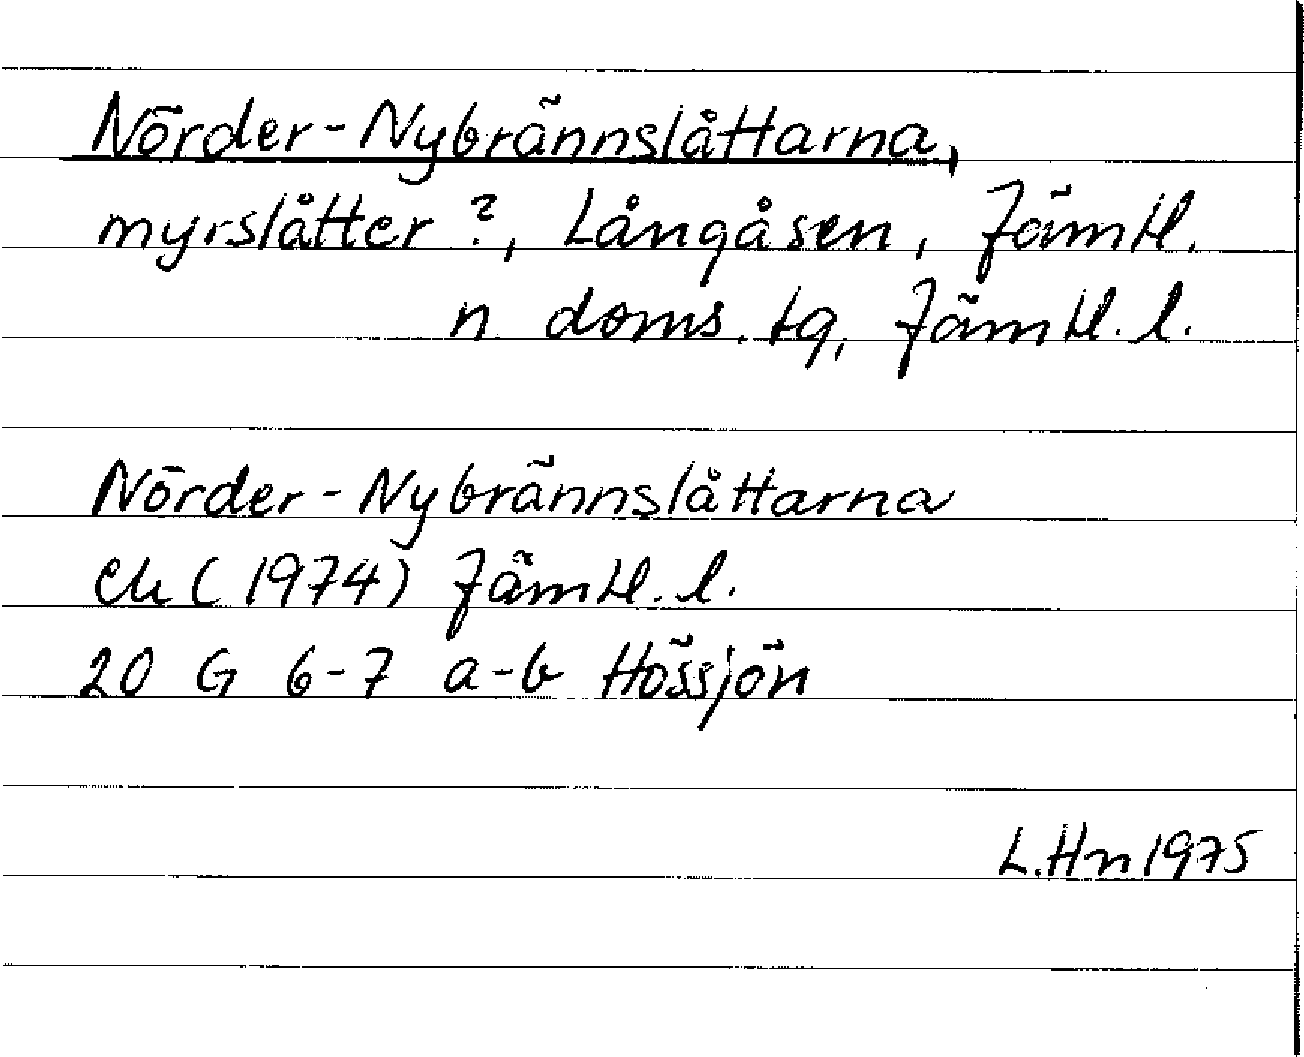 Nörder-Nybrännslåttarna,
myrslåtter?, Långåsen, Jämtl.
n. doms. tg, Jämtl. l.
Nörder-Nybrännslåttarna
ek (1974) Jämtl. l.
20 G 6-7 a-b Hössjön
L.Hn 1975